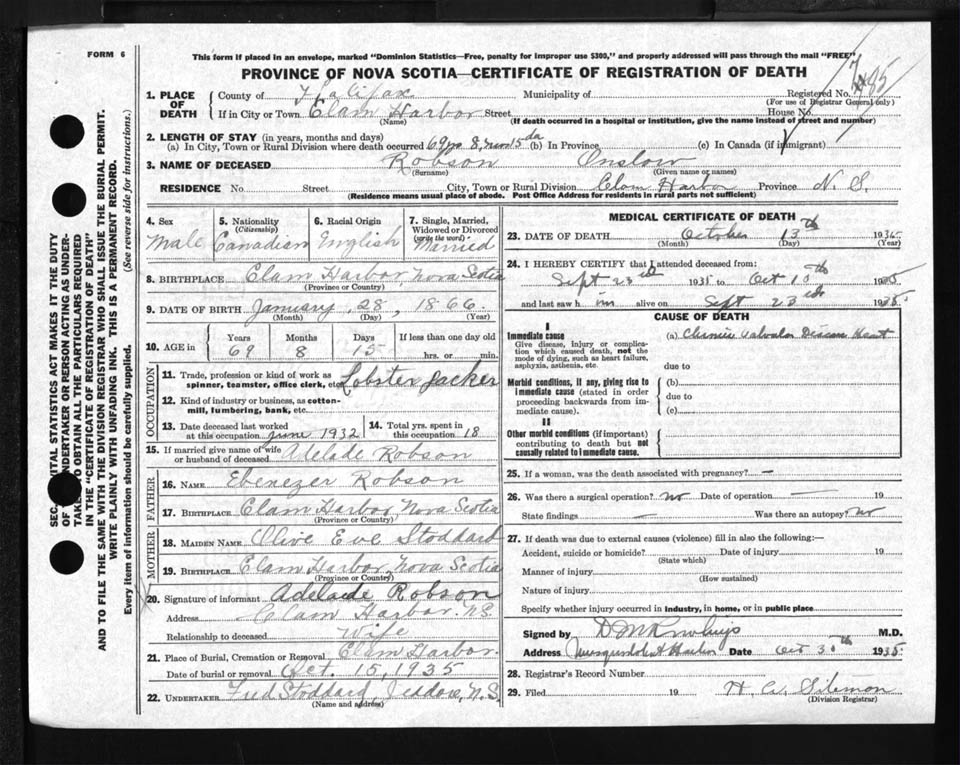 FORM 6
This form if placed in an envelope, marked "Dominion Statistics—Free, penalty for improper use $300," and properly addressed will pass through the mail "FREE"
PROVINCE OF NOVA SCOTIA—CERTIFICATE OF REGISTRATION OF DEATH
SEC. VITAL STATISTICS ACT MAKES IT THE DUTY
OF UNDERTAKER OR PERSON ACTING AS UNDER-
TAKER TO OBTAIN ALL THE PARTICULARS REQUIRED
IN THE "CERTIFICATE OF REGISTRATION OF DEATH"
AND TO FILE THE SAME WITH THE DIVISION REGISTRAR WHO SHALL ISSUE THE BURIAL PERMIT.
WRITE PLAINLY WITH UNFADING INK. THIS IS A PERMANENT RECORD.
Every item of information should be carefully supplied. (See reverse side for instructions.)
1. PLACE OF DEATH
County of Halifax Municipality of Registered No.
(For use of Registrar General only)
If in City or Town Clam Harbor Street House No.
(Name) (If death occurred in a hospital or institution, give the name instead of street and number)
2. LENGTH OF STAY (in years, months and days)
(a) In City, Town or Rural Division where death occurred 69 yrs 8 mos 15 da (b) In Province (c) In Canada (if immigrant)
3. NAME OF DECEASED Robson Onslow
(Surname) (Given name or names)
RESIDENCE No. Street City, Town or Rural Division Clam Harbor Province N. S.
(Residence means usual place of abode. Post Office Address for residents in rural parts not sufficient)
4. Sex Male
5. Nationality (Citizenship) Canadian
6. Racial Origin English
7. Single, Married, Widowed or Divorced (write the word) Married
8. BIRTHPLACE Clam Harbor, Nova Scotia
(Province or Country)
9. DATE OF BIRTH January 28, 1866
(Month) (Day) (Year)
10. AGE in Years 69 Months 8 Days 15 If less than one day old hrs. or min.
OCCUPATION
11. Trade, profession or kind of work as spinner, teamster, office clerk, etc. Lobster Packer
12. Kind of industry or business, as cotton-mill, lumbering, bank, etc.
13. Date deceased last worked at this occupation June 1932
14. Total yrs. spent in this occupation 18
15. If married give name of wife or husband of deceased Adelade Robson
FATHER
16. NAME Ebenezer Robson
17. BIRTHPLACE Clam Harbor Nova Scotia
(Province or Country)
MOTHER
18. MAIDEN NAME Olive Eve Stoddard
19. BIRTHPLACE Clam Harbor, Nova Scotia
(Province or Country)
20. Signature of informant Adelaide Robson
Address Clam Harbor. N.S.
Relationship to deceased Wife
21. Place of Burial, Cremation or Removal Clam Harbor.
Date of burial or removal Oct. 15, 1935
22. UNDERTAKER Fred Stoddard, Jeddore, N.S.
(Name and address)
MEDICAL CERTIFICATE OF DEATH
23. DATE OF DEATH October 13th 1935
(Month) (Day) (Year)
24. I HEREBY CERTIFY that I attended deceased from:
Sept 23rd 1935 to Oct 13th 1935
and last saw h im alive on Sept 23rd 1935
CAUSE OF DEATH
I
Immediate cause
Give disease, injury or complication which caused death, not the mode of dying, such as heart failure, asphyxia, asthenia, etc.
(a) Chronic Valvular Disease Heart
due to
Morbid conditions, if any, giving rise to immediate cause (stated in order proceeding backwards from immediate cause).
(b)
due to
(c)
II
Other morbid conditions (if important) contributing to death but not causally related to immediate cause.
25. If a woman, was the death associated with pregnancy? —
26. Was there a surgical operation? no Date of operation — 19
State findings — Was there an autopsy? no
27. If death was due to external causes (violence) fill in also the following:—
Accident, suicide or homicide? Date of injury 19
(State which)
Manner of injury
(How sustained)
Nature of injury
Specify whether injury occurred in industry, in home, or in public place
Signed by M.D.
Address Musquodoboit Harbor Date Oct 30th 1935
28. Registrar's Record Number
29. Filed 19
(Division Registrar)